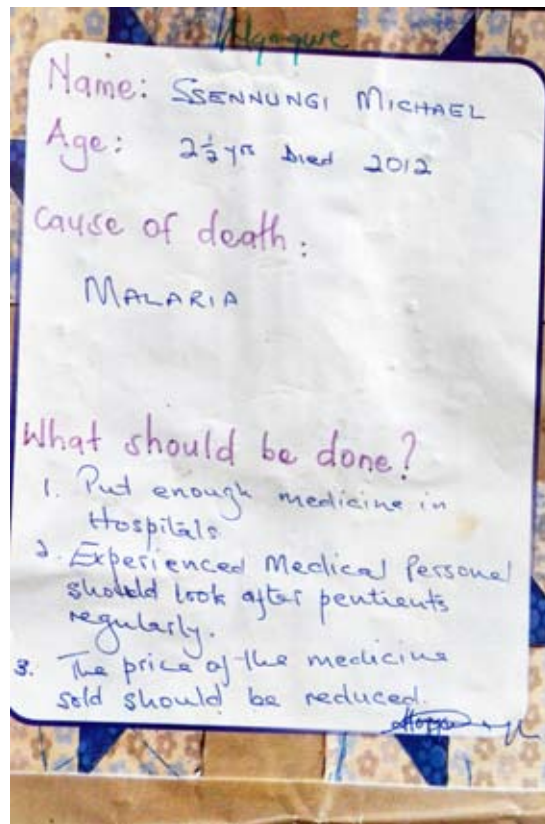 Name: SSENNUNGI MICHAEL
Age: 2½ yrs Died 2012
Cause of death:
MALARIA
What should be done?
1. Put enough medicine in
Hospitals.
2. Experienced Medical Personel
should look after pentients
regularly.
3. The price of the medicine
sold should be reduced.